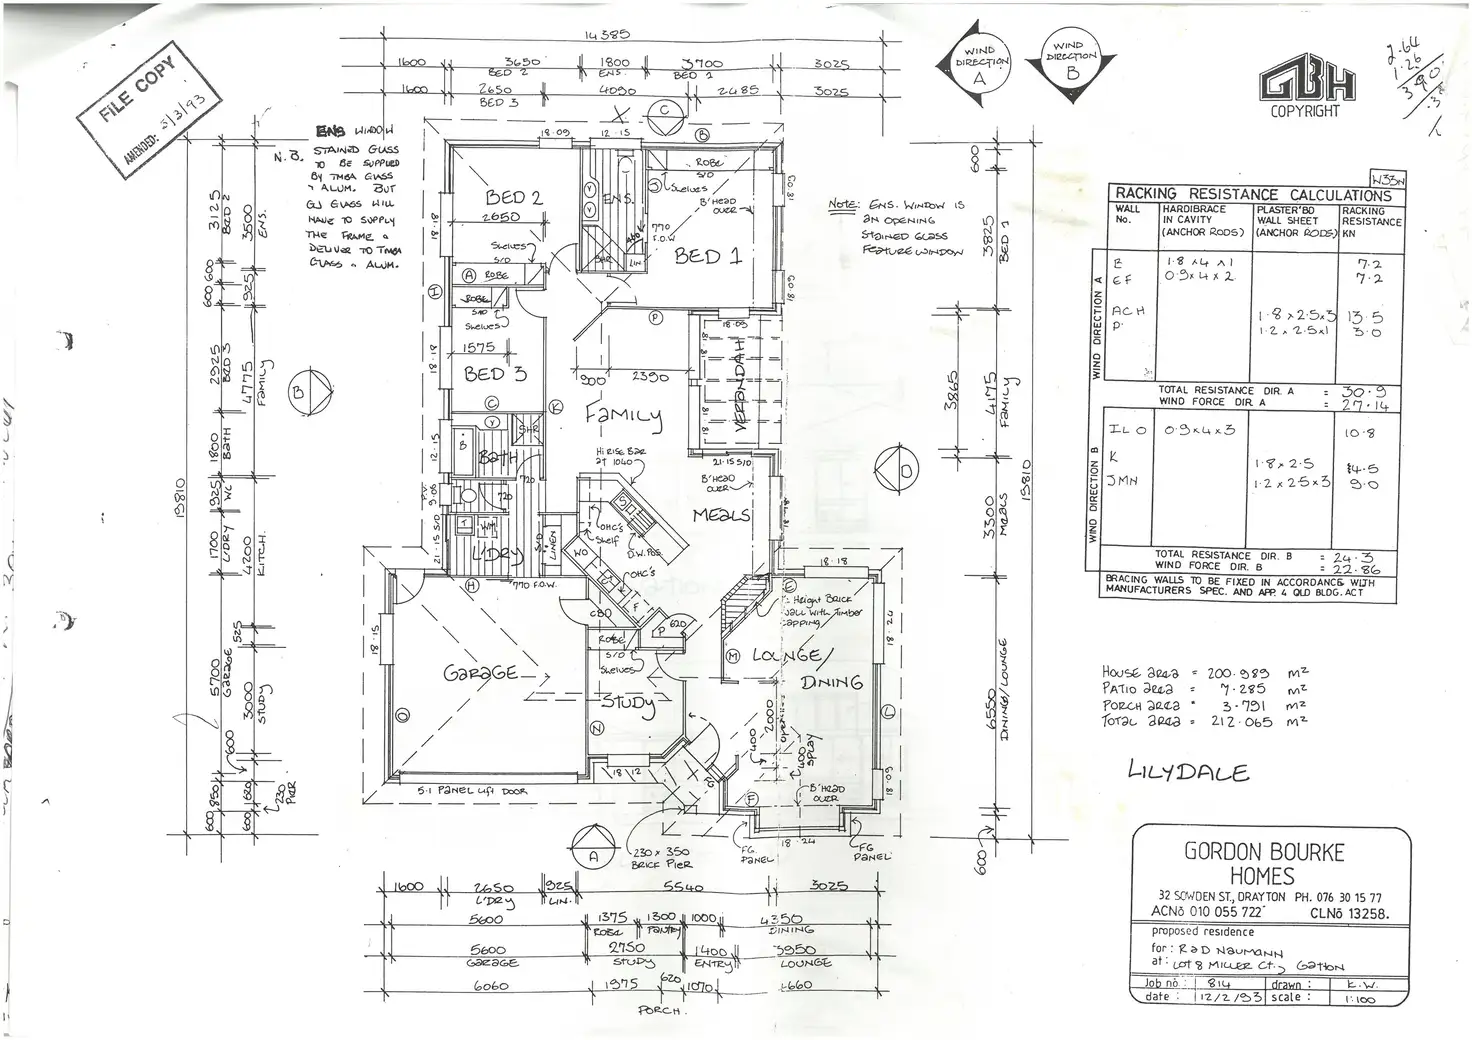 FILE COPY
AMENDED: 5/3/93
14385
1600 3650 1800 3700 3025
BED 2 ENS. BED 1
1600 2650 4090 2485 3025
BED 3
WIND
DIRECTION
A
WIND
DIRECTION
B
GBH
COPYRIGHT
2.64
1.26
3.90
N.B. ENS WINDOW
STAINED GLASS
TO BE SUPPLIED
BY TMBA GLASS
& ALUM. BUT
GJ GLASS WILL
HAVE TO SUPPLY
THE FRAME &
DELIVER TO TMBA
GLASS & ALUM.
NOTE: ENS. WINDOW IS
AN OPENING
STAINED GLASS
FEATURE WINDOW
19810
3125 BED 2
600
600
2925 BED 3
1800 BATH
925 WC
1700 L'DRY
5700 GARAGE
600
850
600
3500 ENS.
925
4775 FAMILY
4200 KITCH.
525
3000 STUDY
620
600
230 PIER
C
B
18·09
12·15
BED 2
2650
SHELVES
S/D
A ROBE
ENS.
SHR
LIN
ROBE
S/D
SHELVES
B'HEAD
OVER
770
F.O.W
BED 1
18·18
I
ROBE
S/D
SHELVES
1575
BED 3
C
K
P
900 2390
FAMILY
18·09
VERONDAH
SHR
B
BATH
12·15
9·06
720
720
HI RISE BAR
AT 1040
21·15 S/D
B'HEAD
OVER
MEALS
T
WM
L'DRY
21·15 S/D
LINEN
S/D
WO
OHC'S
SHELF
D.W. POS.
OHC'S
F
CBD
P
620
H
770 F.O.W.
18·15
GARAGE
O
5·1 PANEL LIFT DOOR
ROBE
S/D
SHELVES
STUDY
N
18·12
E
18·18
HEIGHT BRICK
WALL WITH TIMBER
CAPPING
M LOUNGE/
DINING
18·24
L
2000
OPENING
400
400
SPLAY
B'HEAD
OVER
F
18·09
18·24
FG
PANEL
FG
PANEL
230 x 350
BRICK PIER
A
B
D
600
3825 BED 1
3865
4175 FAMILY
3300 MEALS
6550 DINING/LOUNGE
600
19810
1600 2650 925 5540 3025
L'DRY LIN.
5600 1375 1300 1000 4350
ROBE PANTRY DINING
5600 2750 1400 3950
GARAGE STUDY ENTRY LOUNGE
6060 1975 620 1070 4660
PORCH.
W33N
RACKING RESISTANCE CALCULATIONS
WALL No. HARDIBRACE IN CAVITY (ANCHOR RODS) PLASTER'BD WALL SHEET (ANCHOR RODS) RACKING RESISTANCE KN
WIND DIRECTION A
E 1·8 x 4 x 1 7·2
EF 0·9 x 4 x 2 7·2
ACH 1·8 x 2·5 x 3 13·5
P 1·2 x 2·5 x 1 3·0
TOTAL RESISTANCE DIR. A = 30·9
WIND FORCE DIR. A = 27·14
WIND DIRECTION B
ILO 0·9 x 4 x 3 10·8
K 1·8 x 2·5 4·5
JMN 1·2 x 2·5 x 3 9·0
TOTAL RESISTANCE DIR. B = 24·3
WIND FORCE DIR. B = 22·86
BRACING WALLS TO BE FIXED IN ACCORDANCE WITH
MANUFACTURERS SPEC. AND APP. 4 QLD BLDG. ACT
HOUSE AREA = 200·989 m2
PATIO AREA = 7·285 m2
PORCH AREA = 3·791 m2
TOTAL AREA = 212·065 m2
LILYDALE
GORDON BOURKE
HOMES
32 SOWDEN ST., DRAYTON PH. 076 30 15 77
ACNō 010 055 722 CLNō 13258.
proposed residence
for: R & D NAUMANN
at: LOT 8 MILLER CT., GATTON
Job no: 814 drawn: K.W.
date: 12/2/93 scale: 1:100